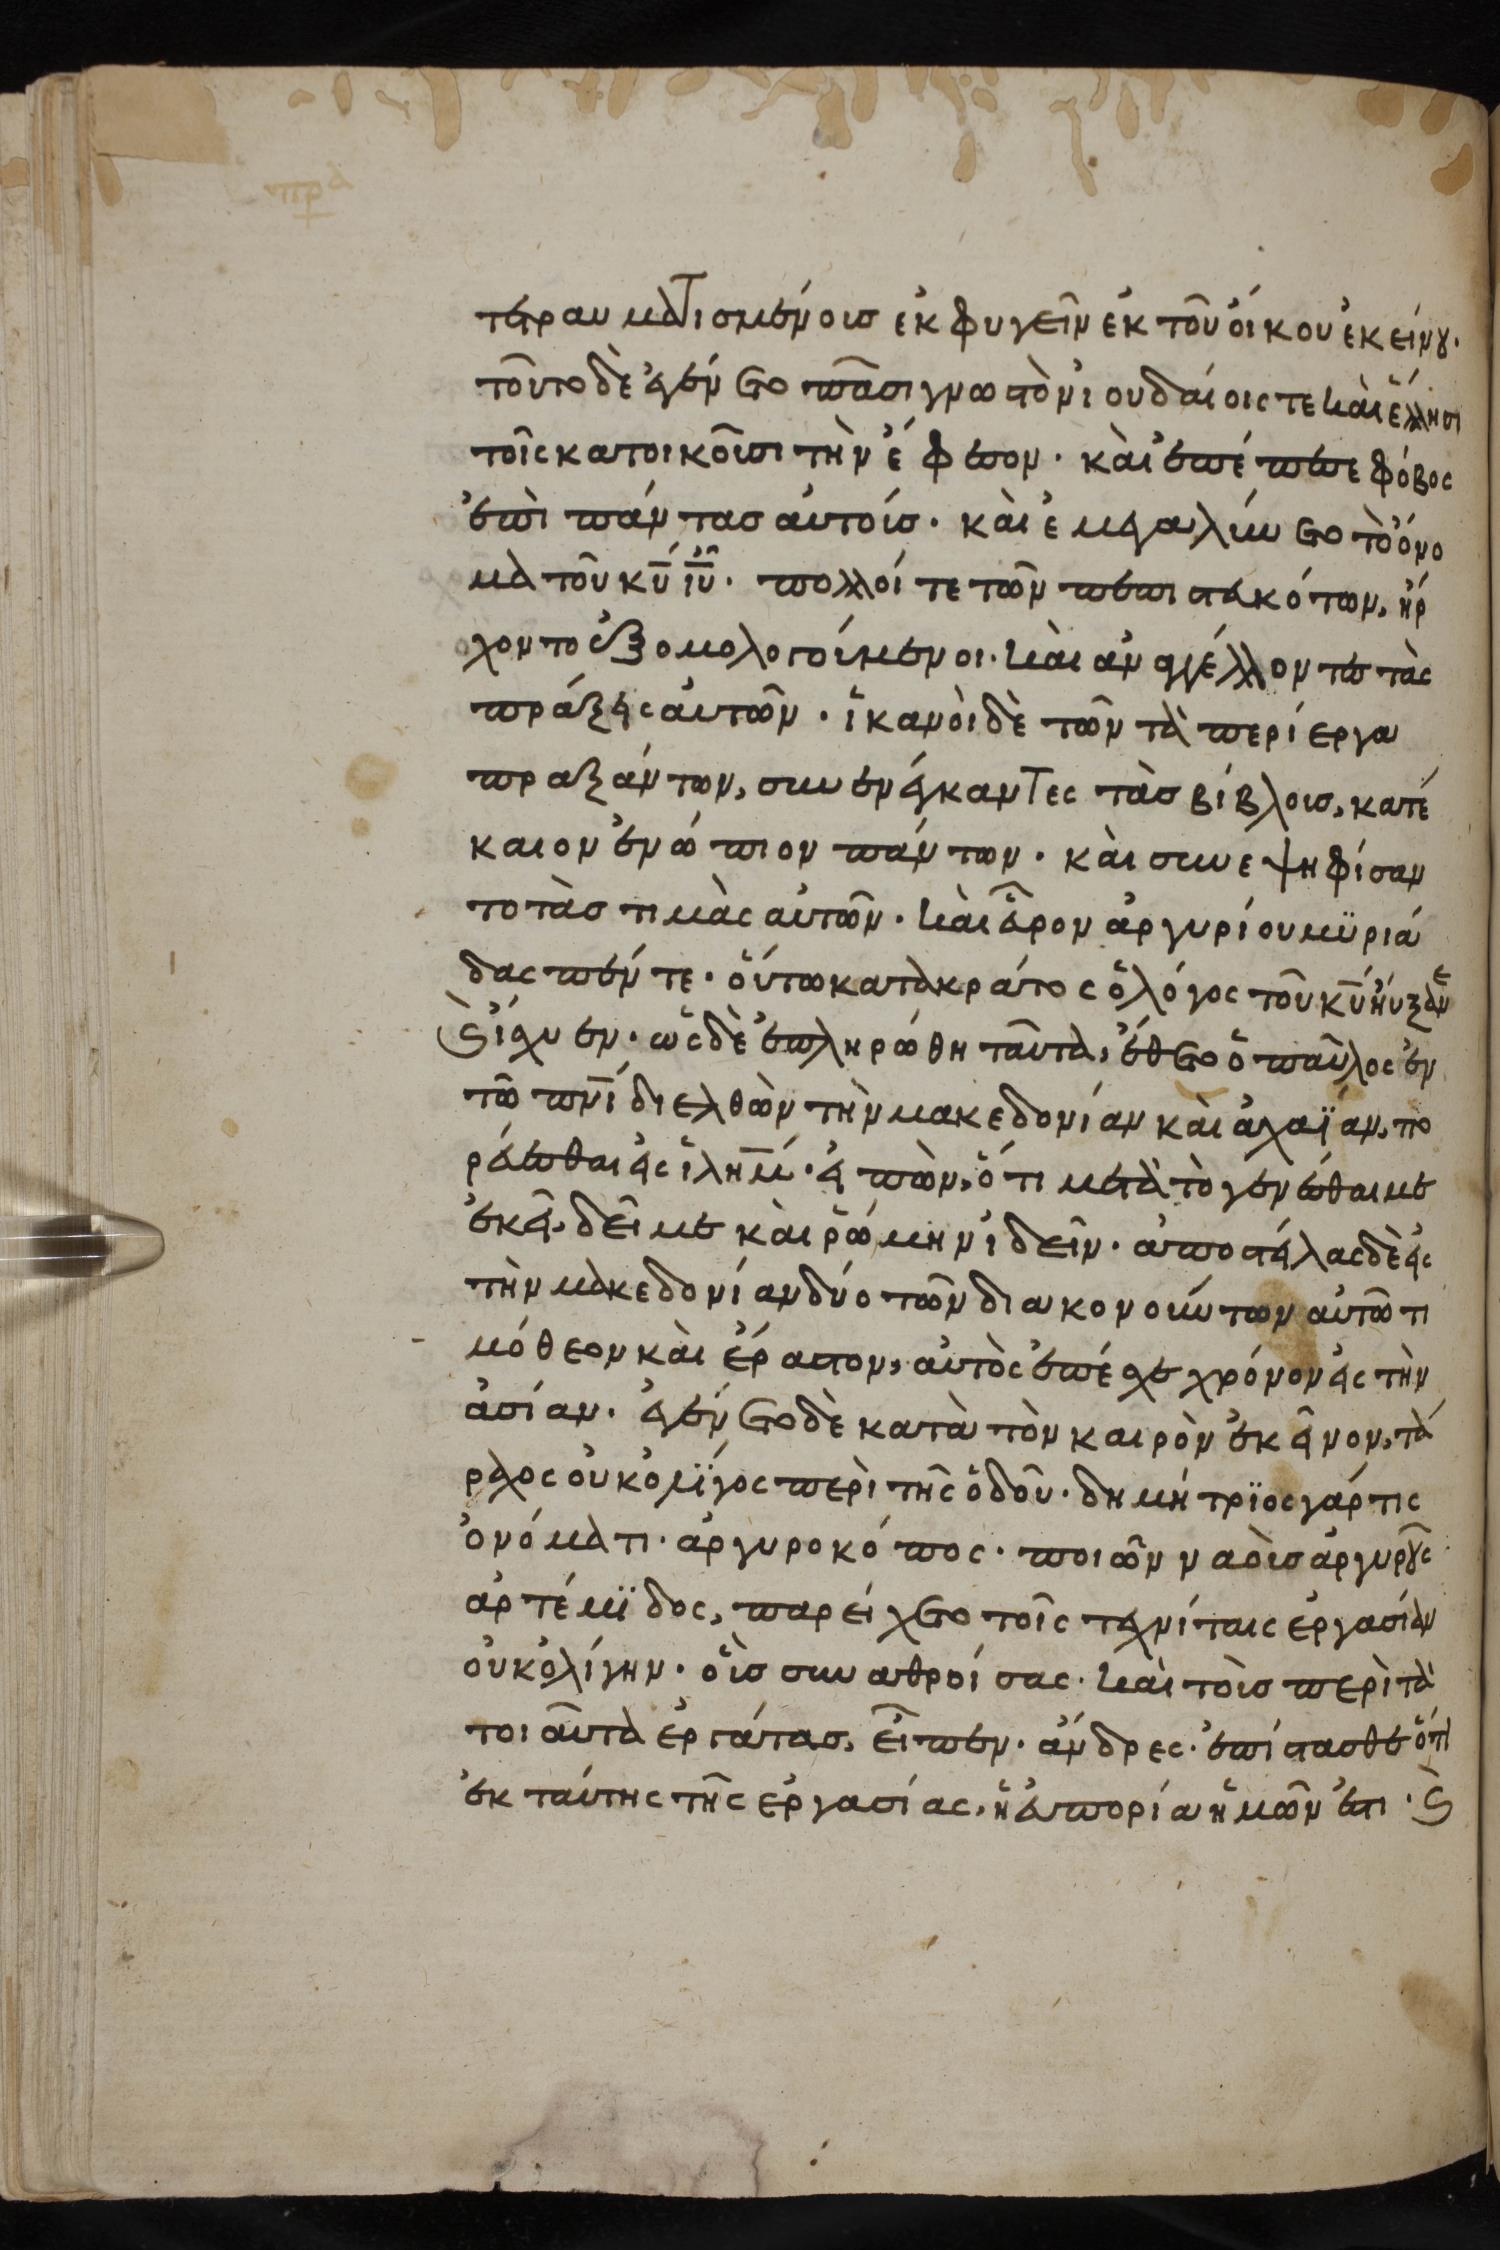 πρα
τετραυματισμένους ἐκφυγεῖν ἐκ τοῦ οἴκου ἐκείνου.
τοῦτο δὲ ἐγένετο πᾶσι γνωστὸν ἰουδαίοις τε καὶ ἕλλησι
τοῖς κατοικοῦσι τὴν ἔφεσον. καὶ ἐπέπεσε φόβος
ἐπὶ πάντας αὐτούς. καὶ ἐμεγαλύνετο τὸ ὄνο
μα τοῦ κ̅υ̅ ἰ̅υ̅. πολλοί τε τῶν πεπιστευκότων, ἤρ
χοντο ἐξομολογούμενοι. καὶ ἀναγγέλλοντες τὰς
πράξεις αὐτῶν. ἱκανοὶ δὲ τῶν τὰ περίεργα
πραξάντων, συνενέγκαντες τὰς βίβλους, κατέ
καιον ἐνώπιον πάντων. καὶ συνεψηφίσαν
το τὰς τιμὰς αὐτῶν. καὶ εὗρον ἀργυρίου μϋριά
δας πέντε. οὕτω κατακράτος ὁ λόγος τοῦ κ̅υ̅ ηὔξανε
καὶ ἴσχυεν. ὡς δὲ ἐπληρώθη ταῦτα, ἔθετο ὁ παῦλος ἐν
τῶ π̅ν̅ι̅ διελθὼν τὴν μακεδονίαν καὶ ἀχαΐαν, πο
ρεύεσθαι εἰς ἰλη̅μ̅. εἰπὼν, ὅτι μετὰ τὸ γενέσθαι με
ἐκεῖ, δεῖ με καὶ ῥώμην ἰδεῖν. ἀποστείλας δὲ εἰς
τὴν μακεδονίαν δύο τῶν διακονούντων αὐτῶ τι
μόθεον καὶ ἔραστον, αὐτὸς ἐπέσχε χρόνον εἰς τὴν
ἀσίαν. ἐγένετο δὲ κατὰ τὸν καιρὸν ἐκεῖνον, τά
ραχος οὐκ ὀλΐγος περὶ τῆς ὁδοῦ. δημήτρϊος γάρ τις
ὀνόματι. ἀργυροκόπος. ποιῶν ναοὺς ἀργυροῦς
ἀρτέμϊδος, παρείχετο τοῖς τεχνίταις ἐργασίαν
οὐκ ὀλίγην. οὓς συναθροίσας. καὶ τοὺς περὶ τὰ
τοιαῦτα ἐργάτας, εἶπεν. ἄνδρες. ἐπίστασθε ὅτι
ἐκ ταύτης τῆς ἐργασίας, ἡ εὐπορία ἡμῶν ἐστι. καὶ